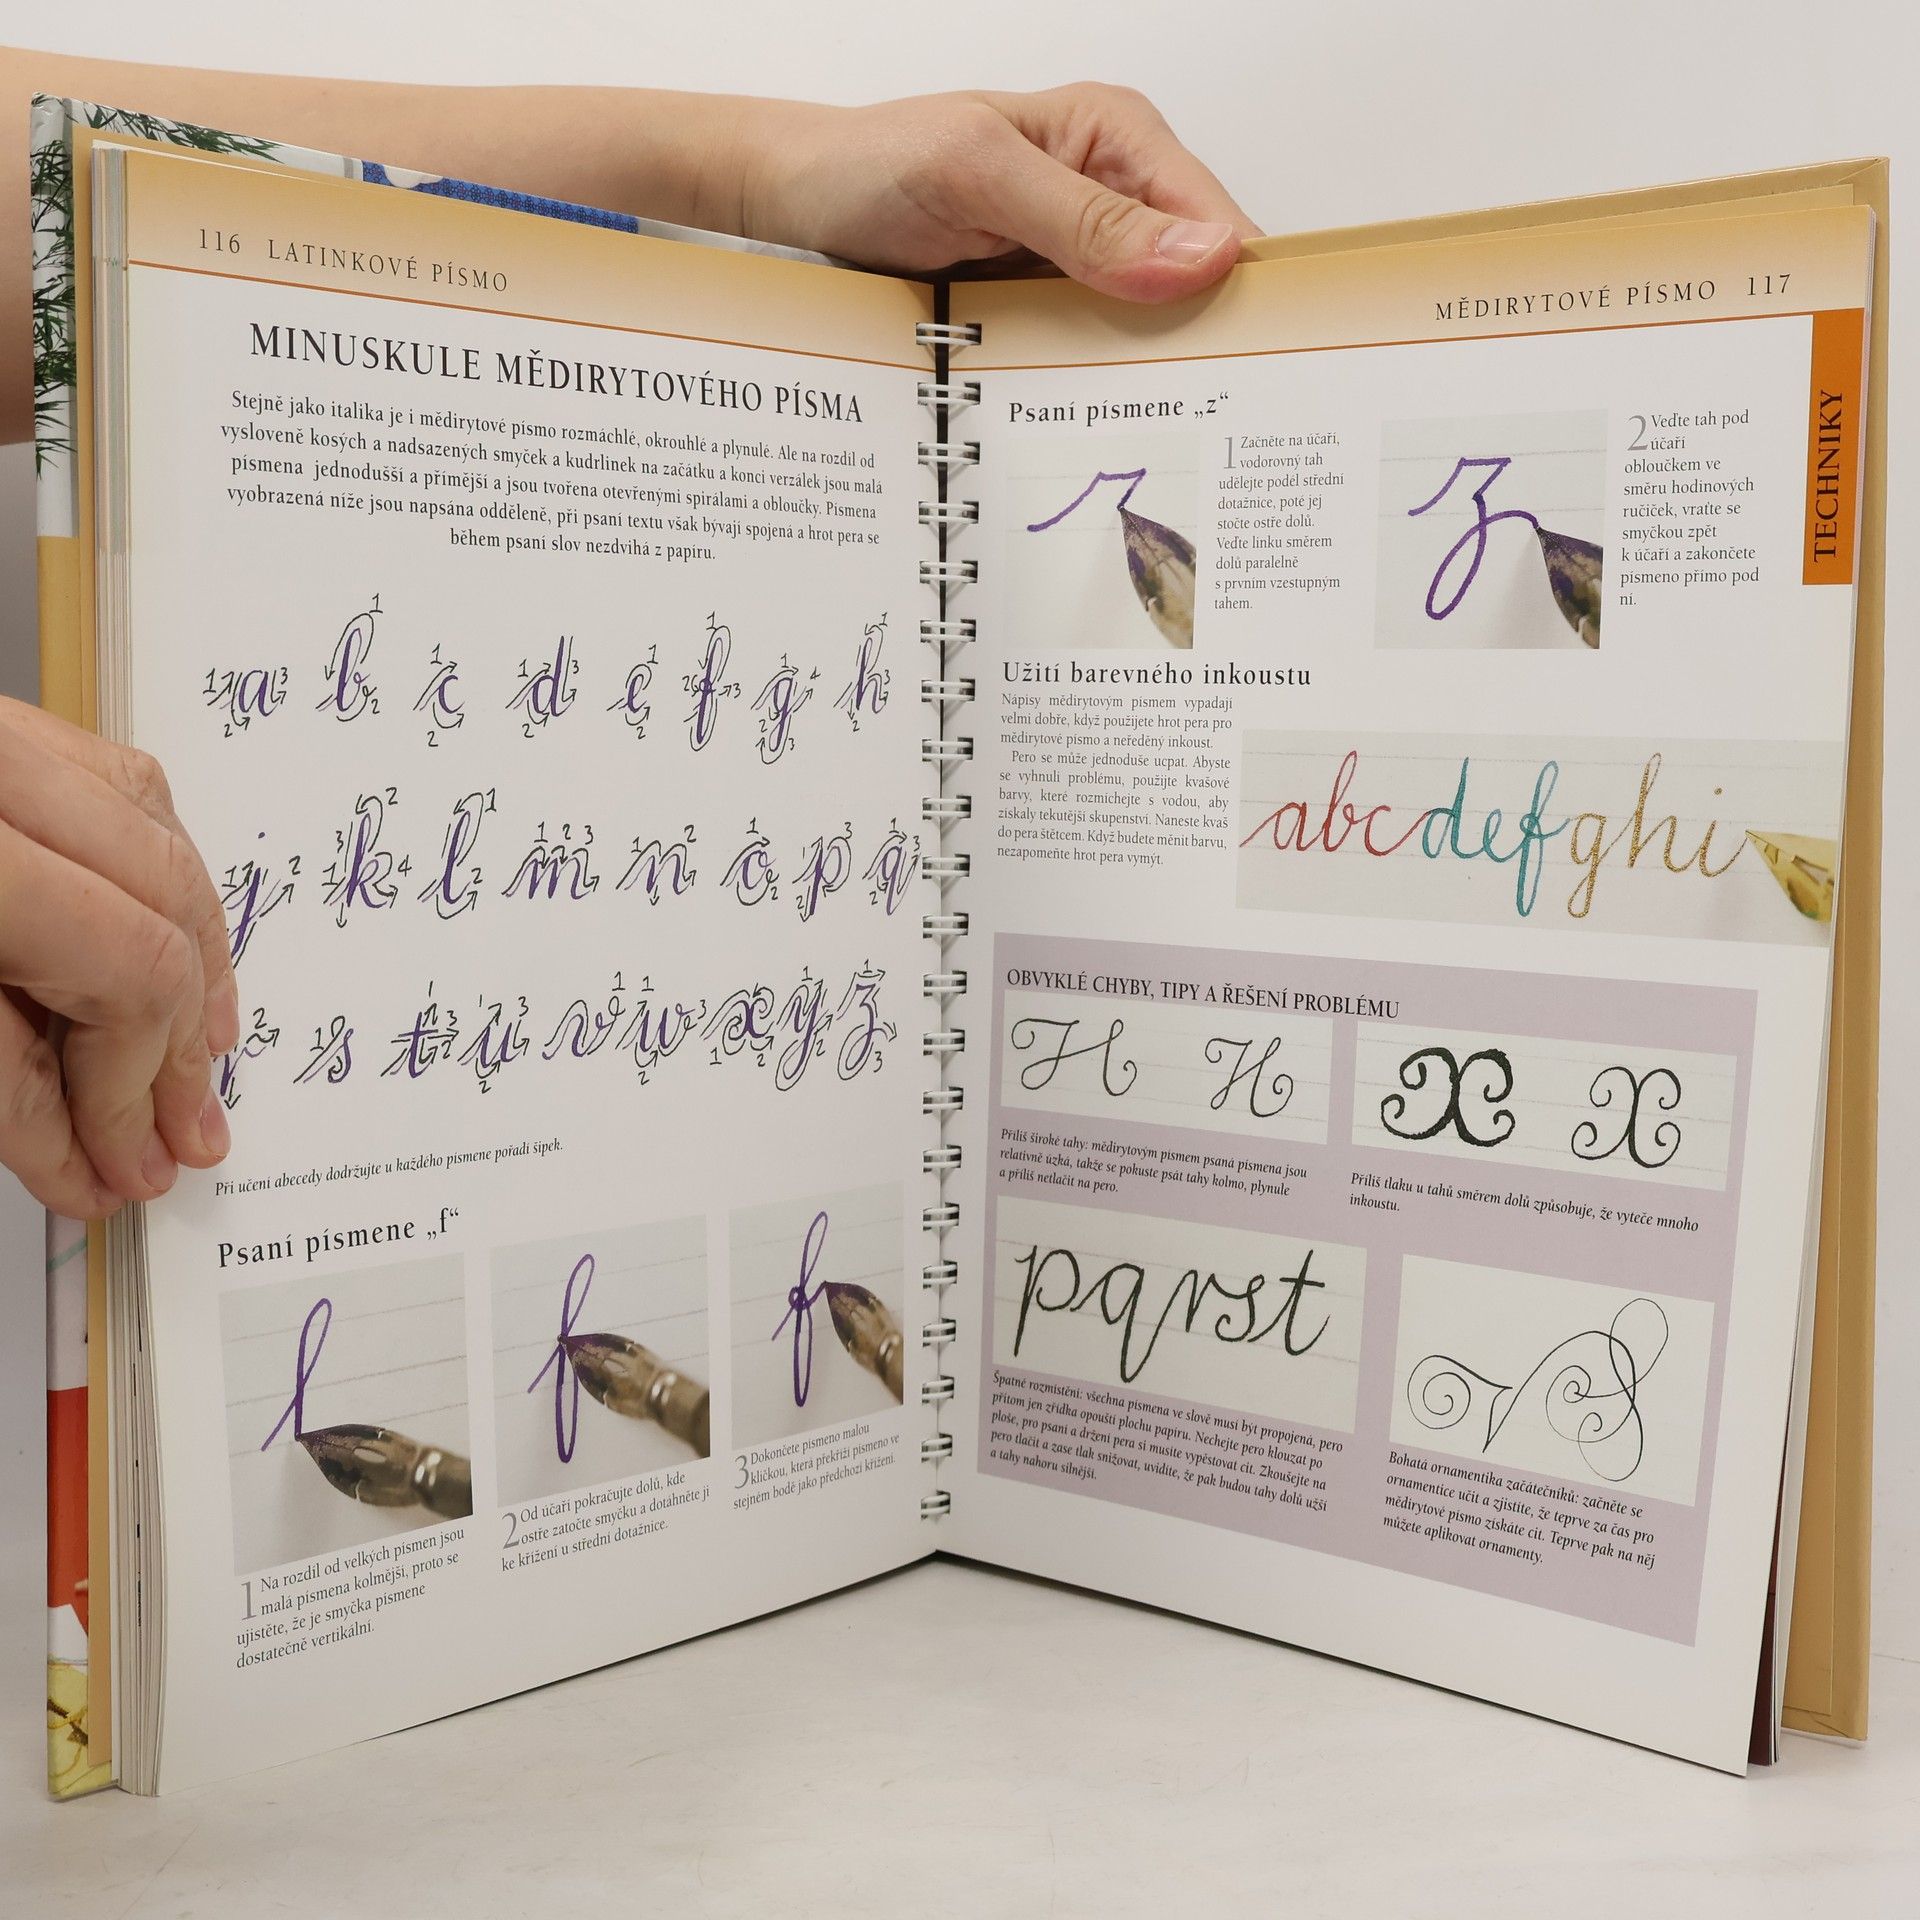 116 LATINKOVÉ PÍSMO
MINUSKULE MĚDIRYTOVÉHO PÍSMA
Stejně jako italika je i mědirytové písmo rozmáchlé, okrouhlé a plynulé. Ale na rozdíl od
vysloveně kosých a nadsazených smyček a kudrlinek na začátku a konci verzálek jsou malá
písmena jednodušší a přímější a jsou tvořena otevřenými spirálami a obloučky. Písmena
vyobrazená níže jsou napsána odděleně, při psaní textu však bývají spojená a hrot pera se
během psaní slov nezdvihá z papíru.
a b c d e f g h
j k l m n o p q
r s t u v w x y z
Při učení abecedy dodržujte u každého písmene pořadí šipek.
Psaní písmene „f“
1 Na rozdíl od velkých písmen jsou
malá písmena kolmější, proto se
ujistěte, že je smyčka písmene
dostatečně vertikální.
2 Od účaří pokračujte dolů, kde
ostře zatočte smyčku a dotáhněte ji
ke křížení u střední dotažnice.
3 Dokončete písmeno malou
kličkou, která překříží písmeno ve
stejném bodě jako předchozí křížení.
MĚDIRYTOVÉ PÍSMO 117
TECHNIKY
Psaní písmene „z“
1 Začněte na účaří,
vodorovný tah
udělejte podél střední
dotažnice, poté jej
stočte ostře dolů.
Veďte linku směrem
dolů paralelně
s prvním vzestupným
tahem.
2 Veďte tah pod
účaří
obloučkem ve
směru hodinových
ručiček, vraťte se
smyčkou zpět
k účaří a zakončete
písmeno přímo pod
ní.
Užití barevného inkoustu
Nápisy mědirytovým písmem vypadají
velmi dobře, když použijete hrot pera pro
mědirytové písmo a neředěný inkoust.
Pero se může jednoduše ucpat. Abyste
se vyhnuli problému, použijte kvašové
barvy, které rozmíchejte s vodou, aby
získaly tekutější skupenství. Naneste kvaš
do pera štětcem. Když budete měnit barvu,
nezapomeňte hrot pera vymýt.
abcdefghi
OBVYKLÉ CHYBY, TIPY A ŘEŠENÍ PROBLÉMU
H H
X X
Příliš široké tahy: mědirytovým písmem psaná písmena jsou
relativně úzká, takže se pokuste psát tahy kolmo, plynule
a příliš netlačit na pero.
Příliš tlaku u tahů směrem dolů způsobuje, že vyteče mnoho
inkoustu.
pqrst
Špatné rozmístění: všechna písmena ve slově musí být propojená, pero
přitom jen zřídka opouští plochu papíru. Nechejte pero klouzat po
ploše, pro psaní a držení pera si musíte vypěstovat cit. Zkoušejte na
pero tlačit a zase tlak snižovat, uvidíte, že pak budou tahy dolů užší
a tahy nahoru silnější.
Bohatá ornamentika začátečníků: začněte se
ornamentice učit a zjistíte, že teprve za čas pro
mědirytové písmo získáte cit. Teprve pak na něj
můžete aplikovat ornamenty.